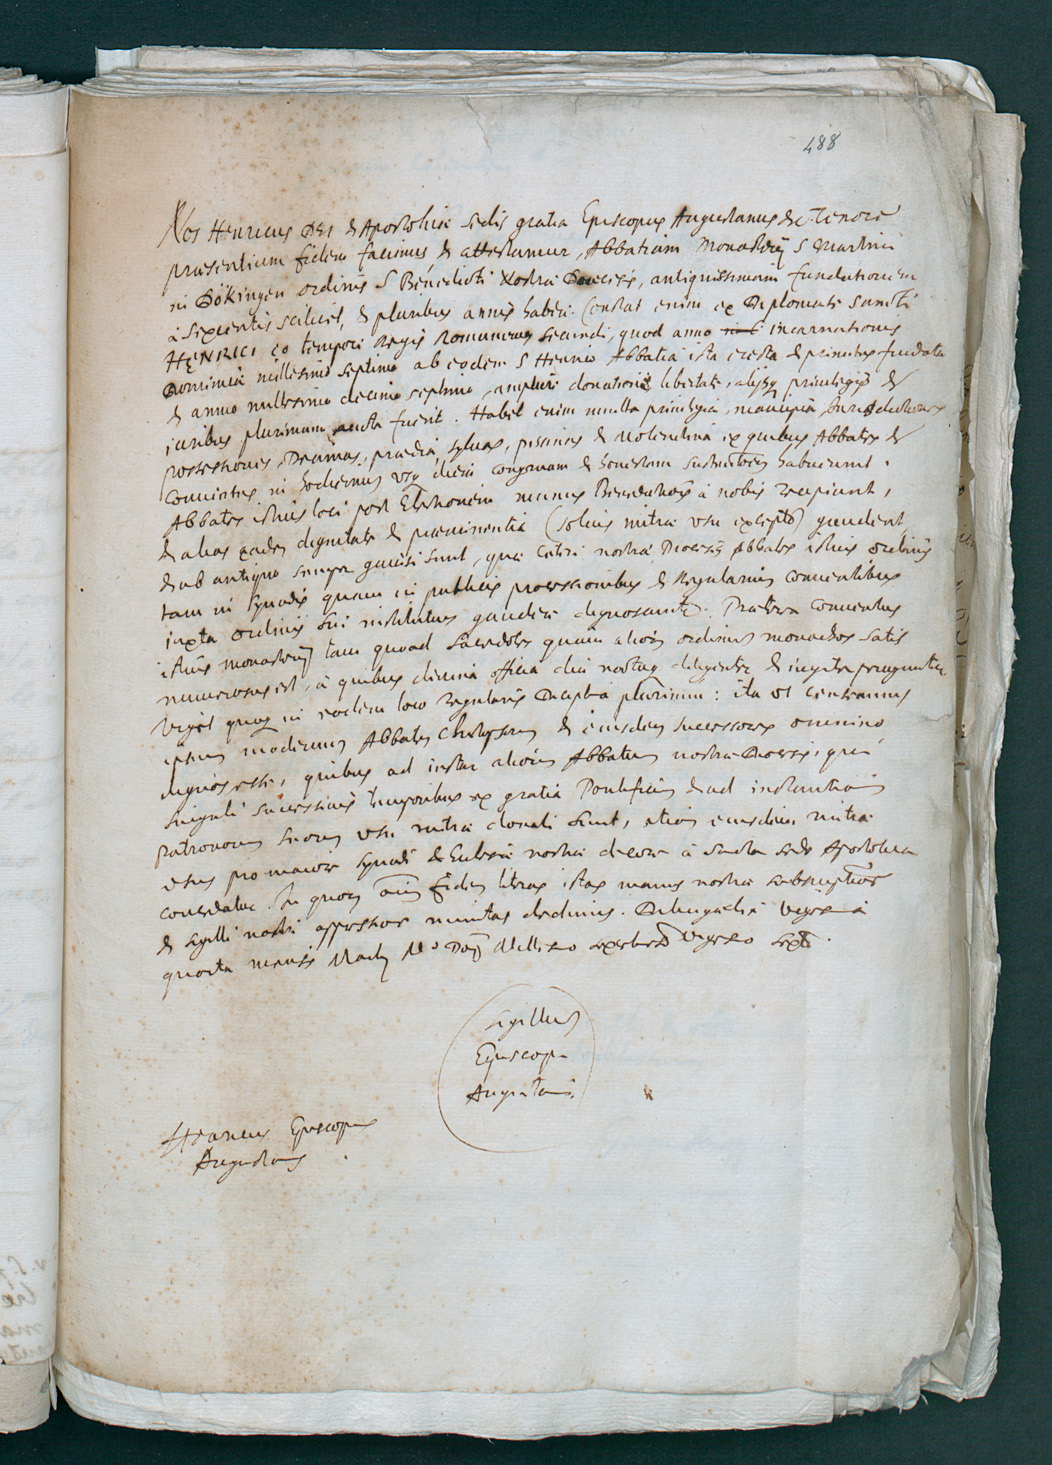 488
Nos Henricus Dei & Apostolicæ sedis gratia Episcopus Augustanus &c. Tenore
præsentium fidem facimus & attestamur, Abbatiam Monasterij S Martini
in Dökingen ordinis S Benedicti Nostræ Diœcesis, antiquissimam fundationem
à sexcentis scilicet, & pluribus annis habere. Constat enim ex Diplomate Sancti
HENRICI eo tempore Regis Romanorum Secundi, quod anno incarnationis
Dominicæ millesimo septimo ab eodem S Henrico Abbatia ista erecta & primitus fundata
& anno millesimo decimo septimo, ampliori donatione libertate, alijsq privilegijs &
iuribus plurimum aucta fuerit. Habet enim multa privilegia, mancipia,
possessiones, Decimas, prædia, sylvas, piscinas & molendina ex quibus Abbates &
Conventus in hodiernum usq diem congruam & honestam sustentationem habuerunt.
Abbates istius loci post Electionem munus Benedictionis à nobis recipiunt,
& alias eadem dignitate & præeminentia (solius mitræ usu excepto) gaudent
& ab antiquo semper gavisi sunt, qua cæteri nostræ Diœcesis Abbates istius ordinis
tam in synodis quam in publicis processionibus & Regularium conventibus
iuxta ordinis sui institutum gaudere dignoscuntur. Præterea Conventus
istius monasterij tam quoad Sacerdotes quam alios ordinis monachos satis
numerosus est, à quibus divina officia diu noctuq diligenter & iugiter peraguntur
viget quoq in eodem loco regularis disciplina plurimum: ita ut censeamus
ipsum modernum Abbatem & eiusdem successores omnino
dignos esse, quibus ad instar aliorum Abbatum nostræ Diœcesis, qui
singuli successivis temporibus ex gratia Pontificum & ad instantiam
patronorum suorum usu mitræ donati sunt, etiam eiusdem mitræ
usus pro maiore synodi & Ecclesiæ nostræ decore à Sancta Sede Apostolica
concedatur. In quorum fidem literas istas manus nostræ subscriptione
& sigilli nostri appressione munitas dedimus. Dilingæ die vigesima
quarta mensis Martij Ao Dnj Millesimo sexcentesimo vigesimo sexto.
Sigillum
Episcopi
Augustani.
Henricus Episcopus
Augustanus